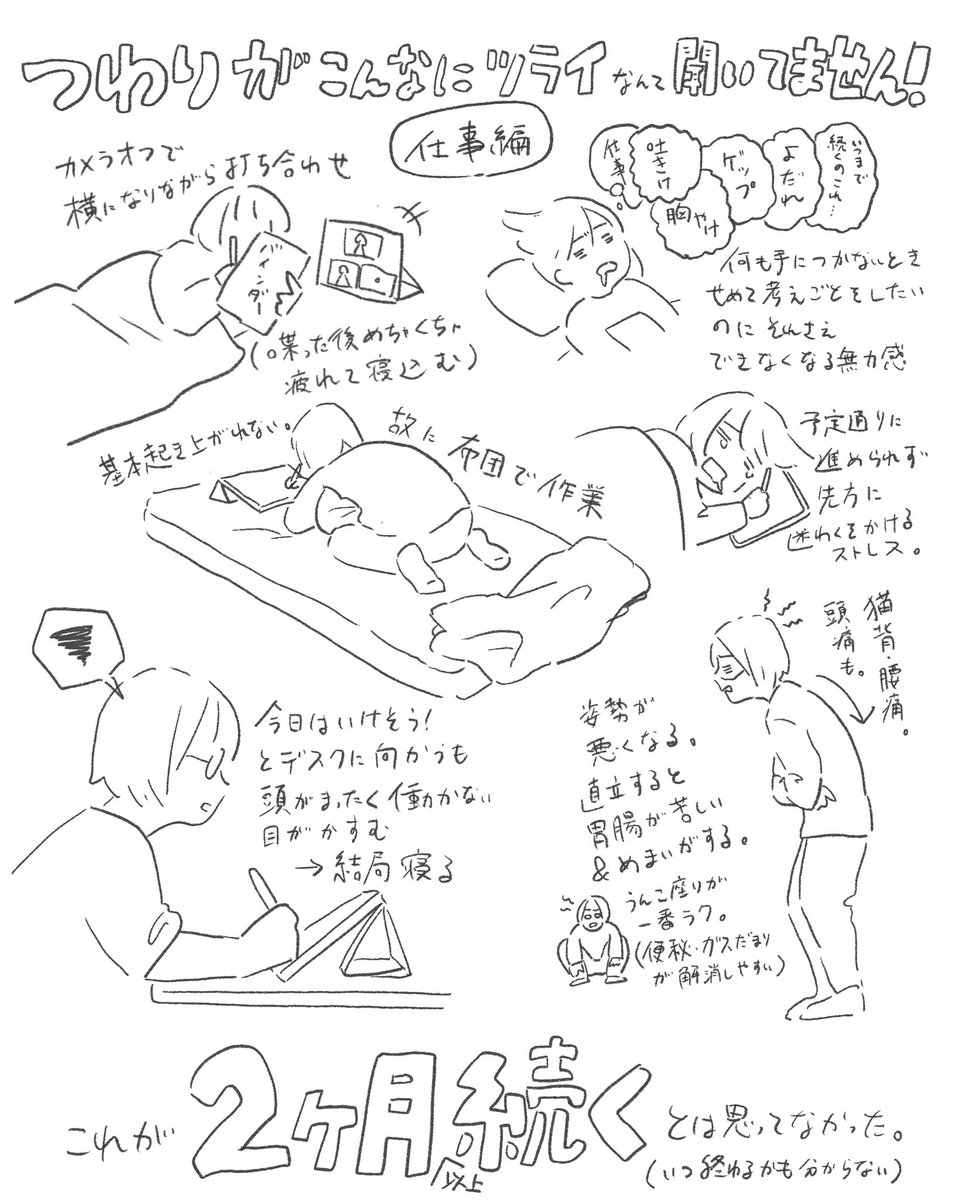 つわりがこんなにツライなんて聞いてません！
仕事編
カメラオフで
横になりながら打ち合わせ
バインダー
(喋った後めちゃくちゃ
疲れて寝込む)
仕事…
吐きけ
胸やけ
ゲップ
よだれ
いつまで
続くのこれ…
何も手につかないとき
せめて考えごとをしたい
のにそれさえ
できなくなる無力感
基本起き上がれない。
故に布団で作業
予定通りに
進められず
先方に
迷わくをかける
ストレス。
今日はいけそう!
とデスクに向かうも
頭がまったく働かない
目がかすむ
→結局寝る
猫背・腰痛。
頭痛も。
姿勢が
悪くなる。
直立すると
胃腸が苦しい
&めまいがする。
うんこ座りが
一番ラク。
(便秘・ガスだまり
が解消しやすい)
これが2ヶ月以上続くとは思ってなかった。
(いつ終わるかも分からない)